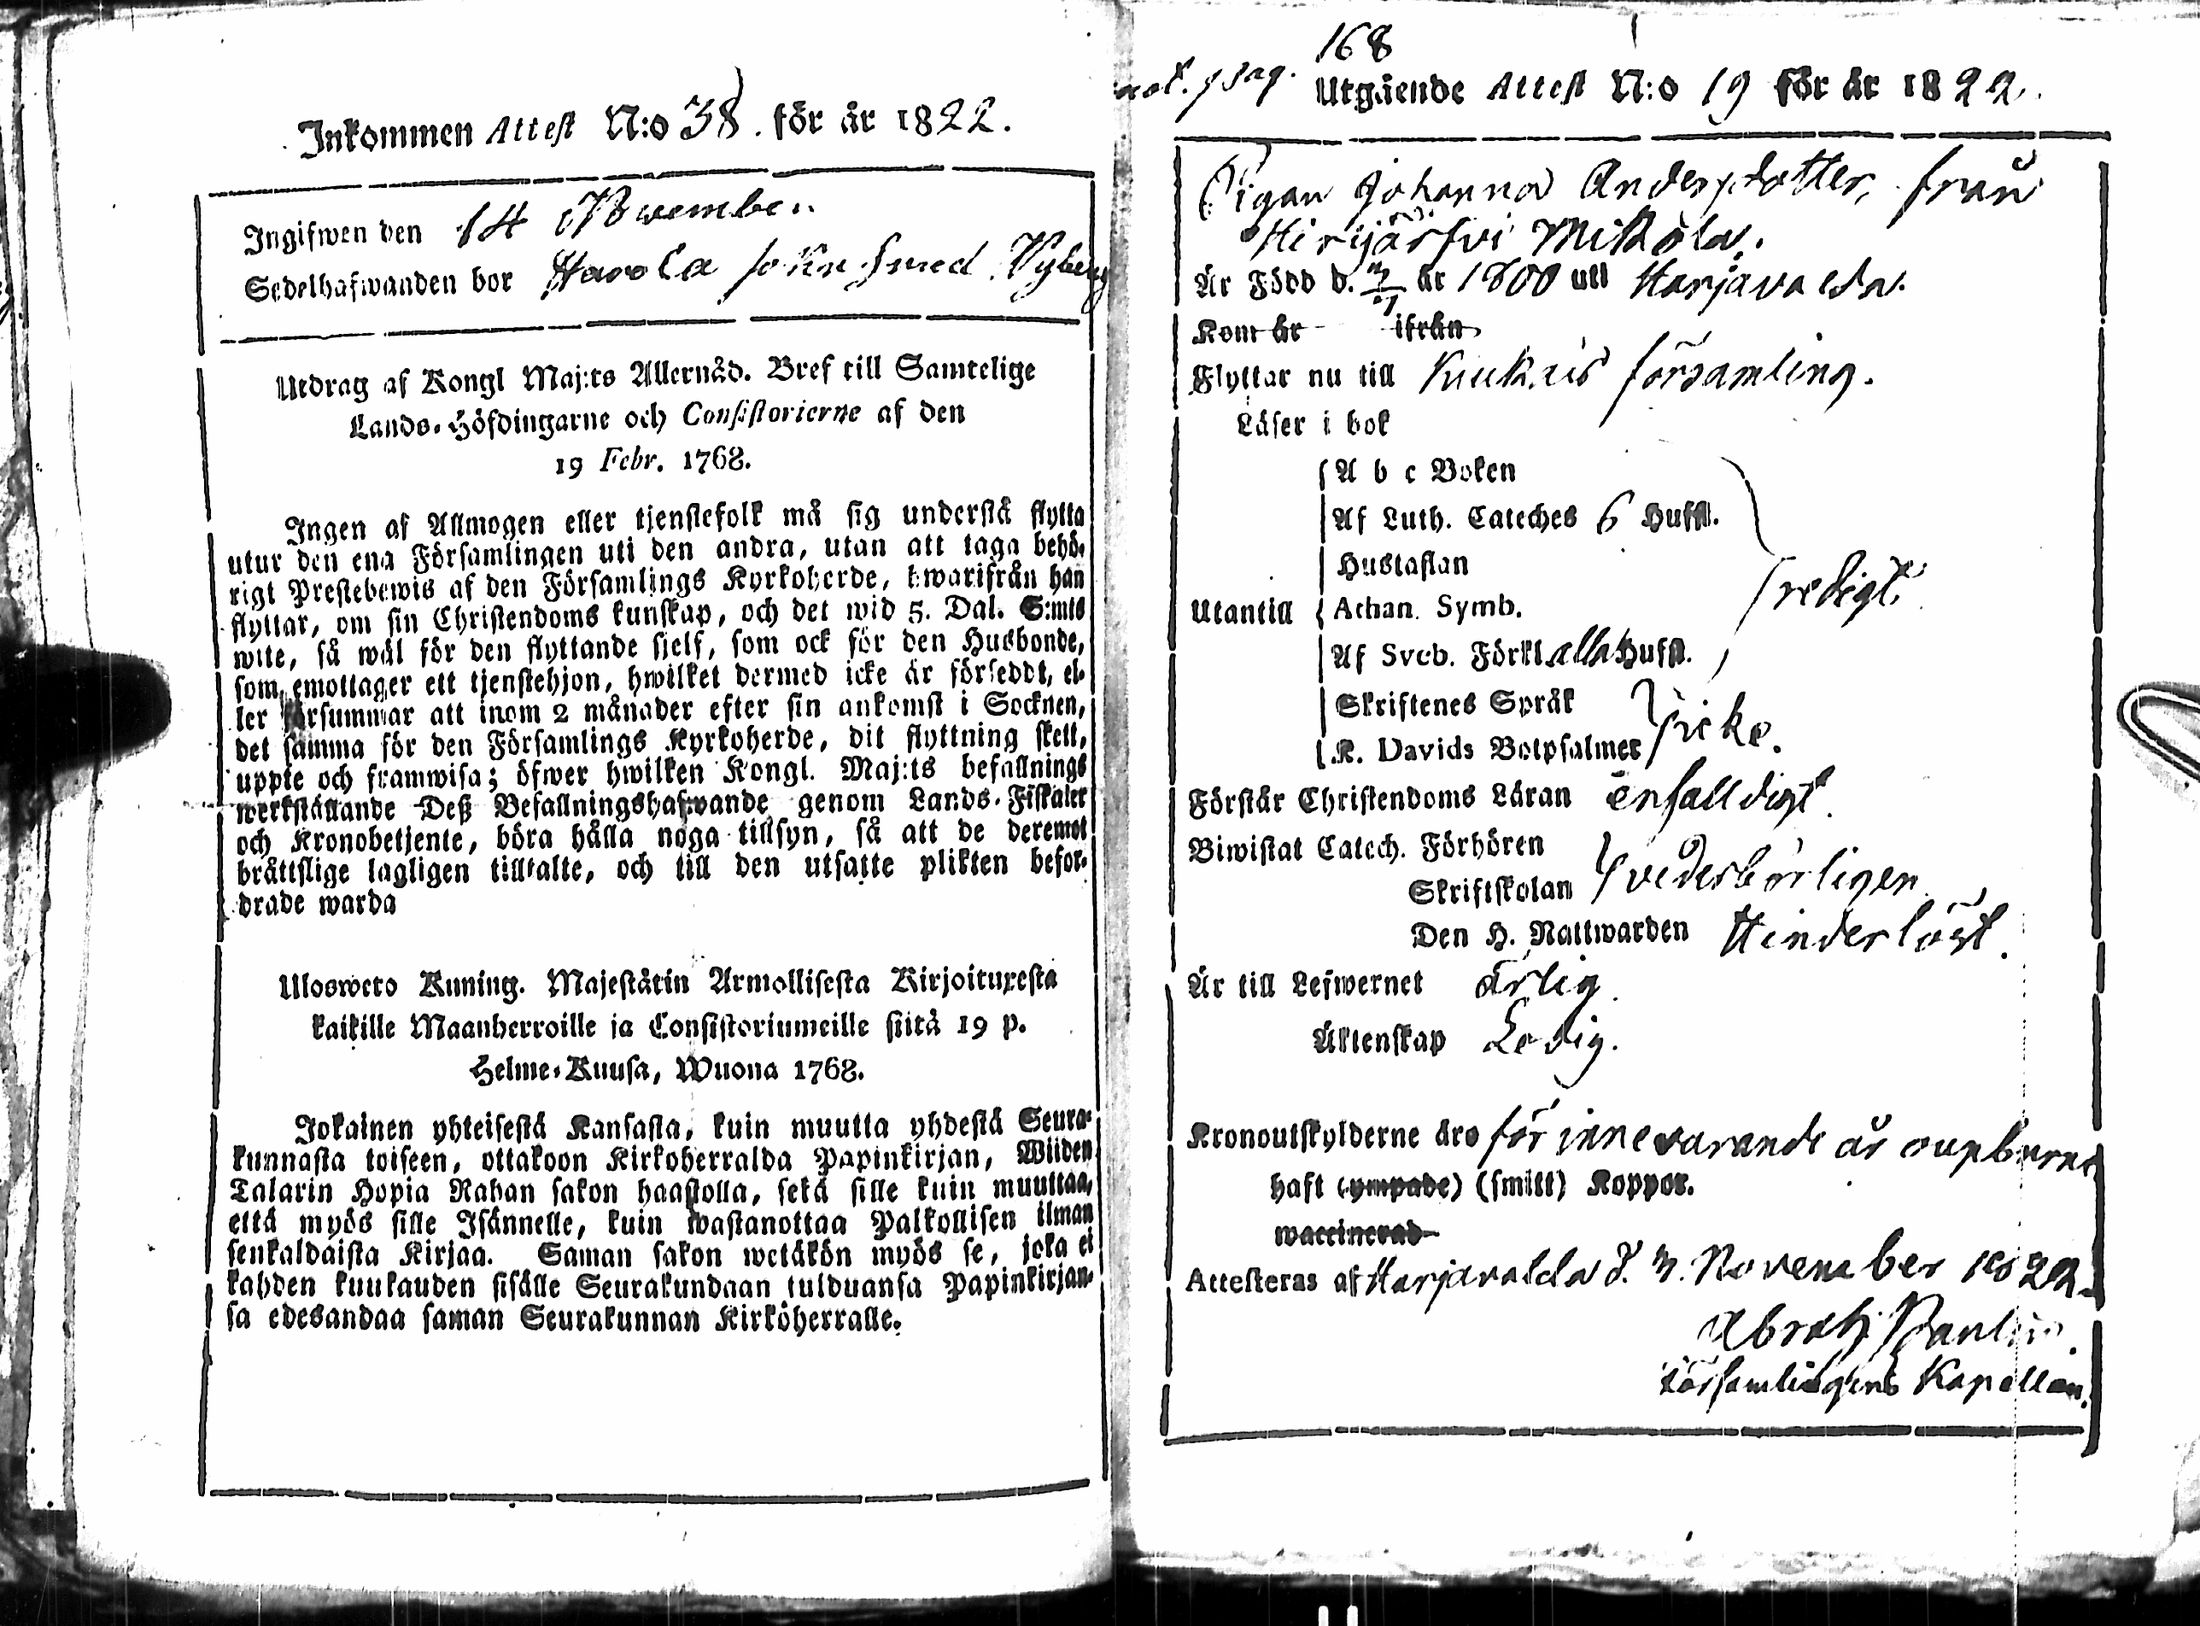 Inkommen Attest N:o 38. för år 1822.
Ingifwen den 14 November
Sedelhafwanden bor Harola sokn smed Nyberg
Utdrag af Kongl Maj:ts Allernåd. Bref till Samtelige
Lands-Höfdingarne och Consistorierne af den
19 Febr. 1768.
Ingen af Allmogen eller tjenstefolk må sig understå flytta
utur den ena Församlingen uti den andra, utan att taga behö-
rigt Prestebewis af den Församlings Kyrkoherde, hwarifrån han
flyttar, om sin Christendoms kunskap, och det wid 5. Dal. S:mts
wite, så wäl för den flyttande sjelf, som ock för den Husbonde,
som emottager ett tjenstehjon, hwilket dermed icke är försedt, el-
ler försummar att inom 2 månader efter sin ankomst i Socknen,
det samma för den Församlings Kyrkoherde, dit flyttning skett,
uppte och framwisa; öfwer hwilken Kongl. Maj:ts befallnings
werkställande Deß Befallningshafwande genom Lands-Fiskaler
och Kronobetjente, böra hålla noga tillsyn, så att de deremot
bråttslige lagligen tilltalte, och till den utsatte plikten befor-
drade warda
Ulosweto Kuning. Majestätin Armollisesta Kirjoituxesta
kaikille Maanherroille ja Consistoriumeille siitä 19 p.
Helme-Kuusa, Wuona 1768.
Jokainen yhteisestä Kansasta, kuin muutta yhdestä Seura-
kunnasta toiseen, ottakoon Kirkoherralda Papinkirjan, Wiiden
Talarin Hopia Rahan sakon haastolla, sekä sille kuin muuttaa,
että myös sille Isännelle, kuin wastanottaa Palkollisen ilman
senkaldaista Kirjaa. Saman sakon wetäkön myös se, joka ei
kahden kuukauden sisälle Seurakundaan tulduansa Papinkirjan-
sa edesandaa saman Seurakunnan Kirkoherralle.
168
pag. Utgående Attest N:o 19 för år 1822.
Pigan Johanna Andersdotter, från
Hirvijärfvi Mikola.
Är Född d. 3/7 år 1800 uti Harjavalda.
Kom år ifrån
Flyttar nu till Kiukais församling.
Läser i bok
A b c Boken
Af Luth. Cateches 6 Hufst.
Hustaflan
Utantill Athan. Symb. redigt.
Af Sveb. Förkl. alla Hufst.
Skriftenes Språk
K. Davids Botpsalmer icke.
Förstår Christendoms Läran enfalldigt.
Biwistat Catech. Förhören
Skriftskolan vederbörligen
Den H. Nattwarden Hinderlöst.
Är till Lefwernet ärlig.
Äktenskap Ledig.
Kronoutskylderne äro för innevarande år oupburne
haft (ympade) (smitt) Koppor.
waccinerad
Attesteras af Harjavalda d. 3. November 1822.
Abrah: Paulin.
Församlingens Kapellan.